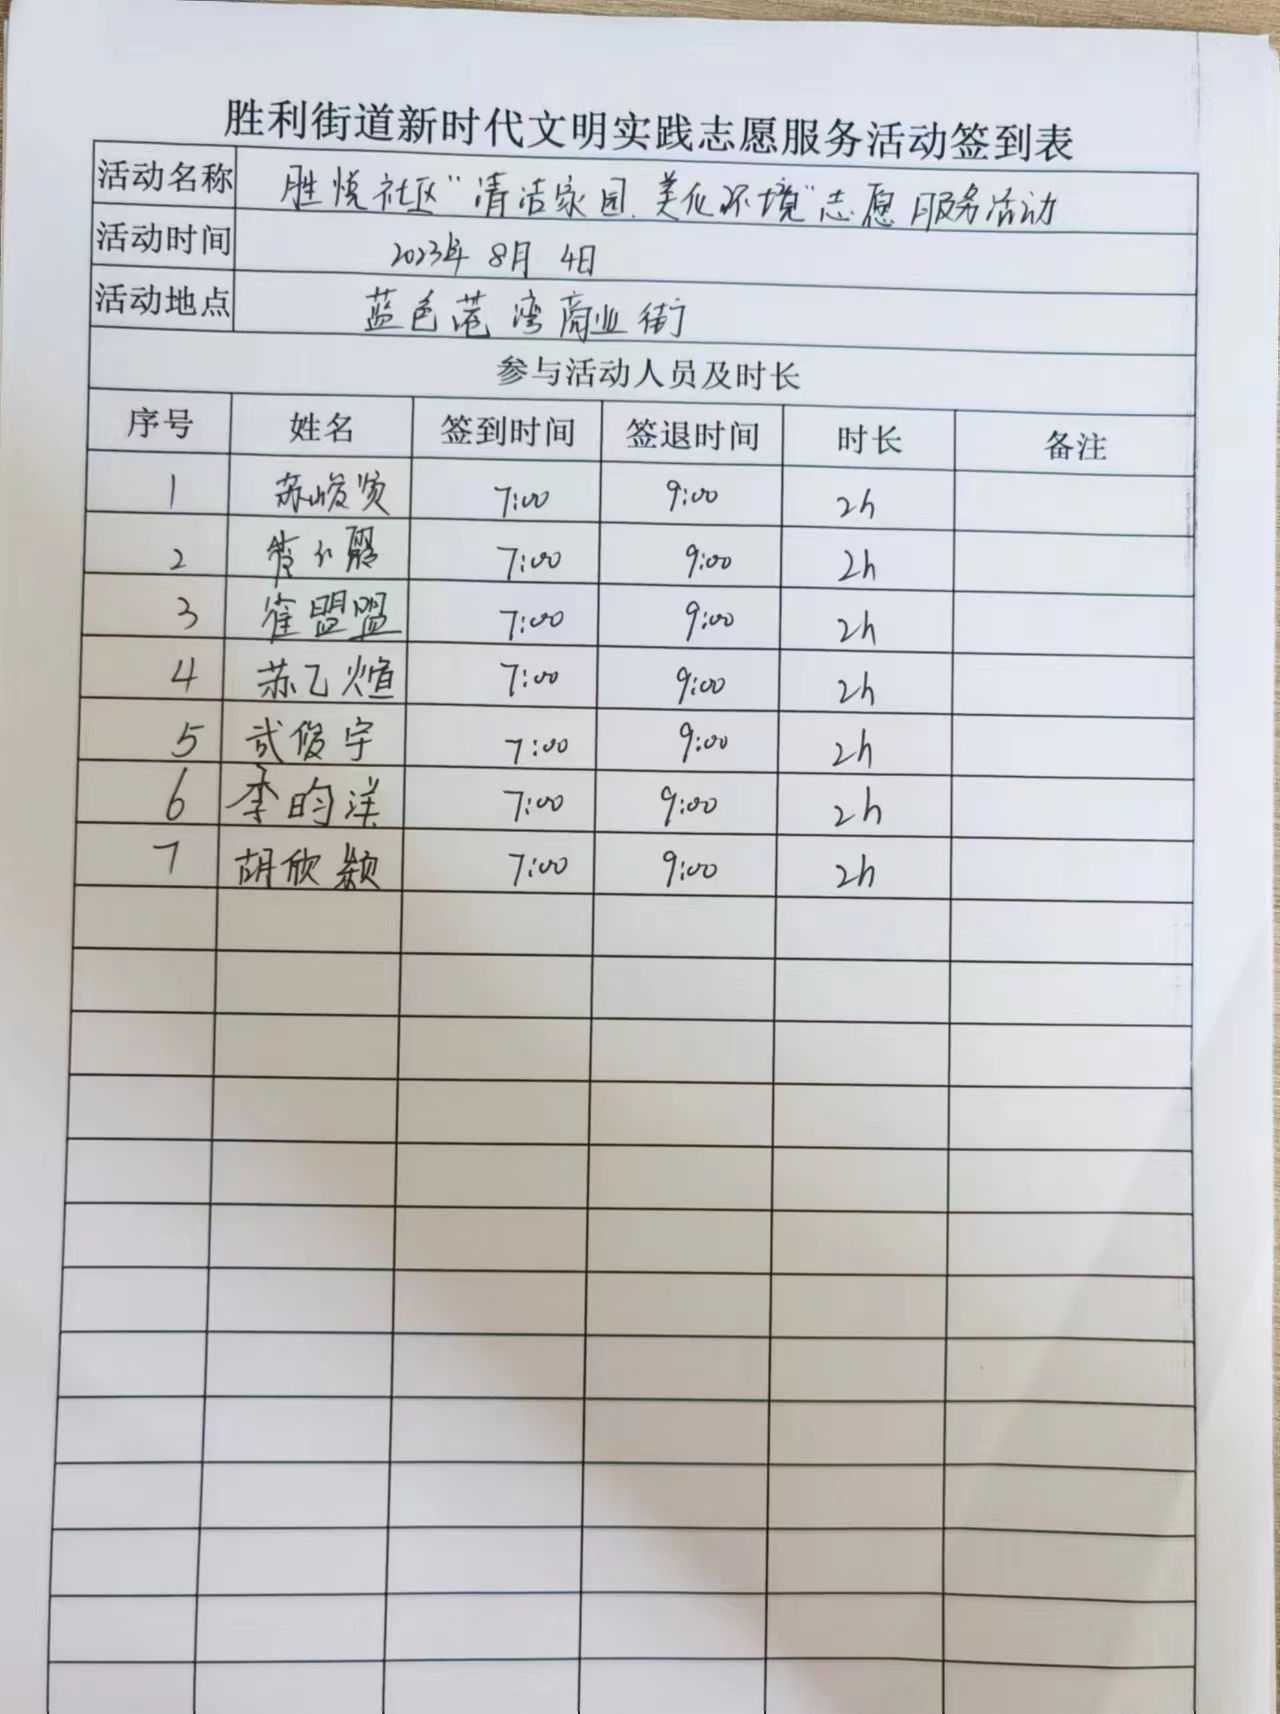 胜利街道新时代文明实践志愿服务活动签到表
活动名称 胜悦社区"清洁家园.美化环境"志愿服务活动
活动时间 2023年8月4日
活动地点 蓝色港湾商业街
参与活动人员及时长
序号 姓名 签到时间 签退时间 时长 备注
1 苏峻贤 7:00 9:00 2h
2 7:00 9:00 2h
3 崔盟盟 7:00 9:00 2h
4 苏乙煊 7:00 9:00 2h
5 武俊宇 7:00 9:00 2h
6 李昀洋 7:00 9:00 2h
7 胡欣颖 7:00 9:00 2h